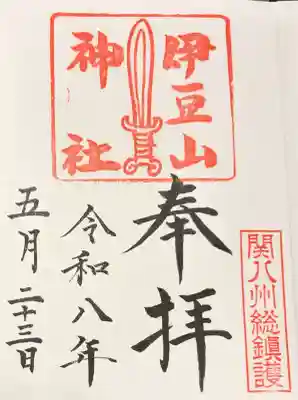 伊豆山
神社
奉拝
関八州総鎮護
令和八年
五月二十三日